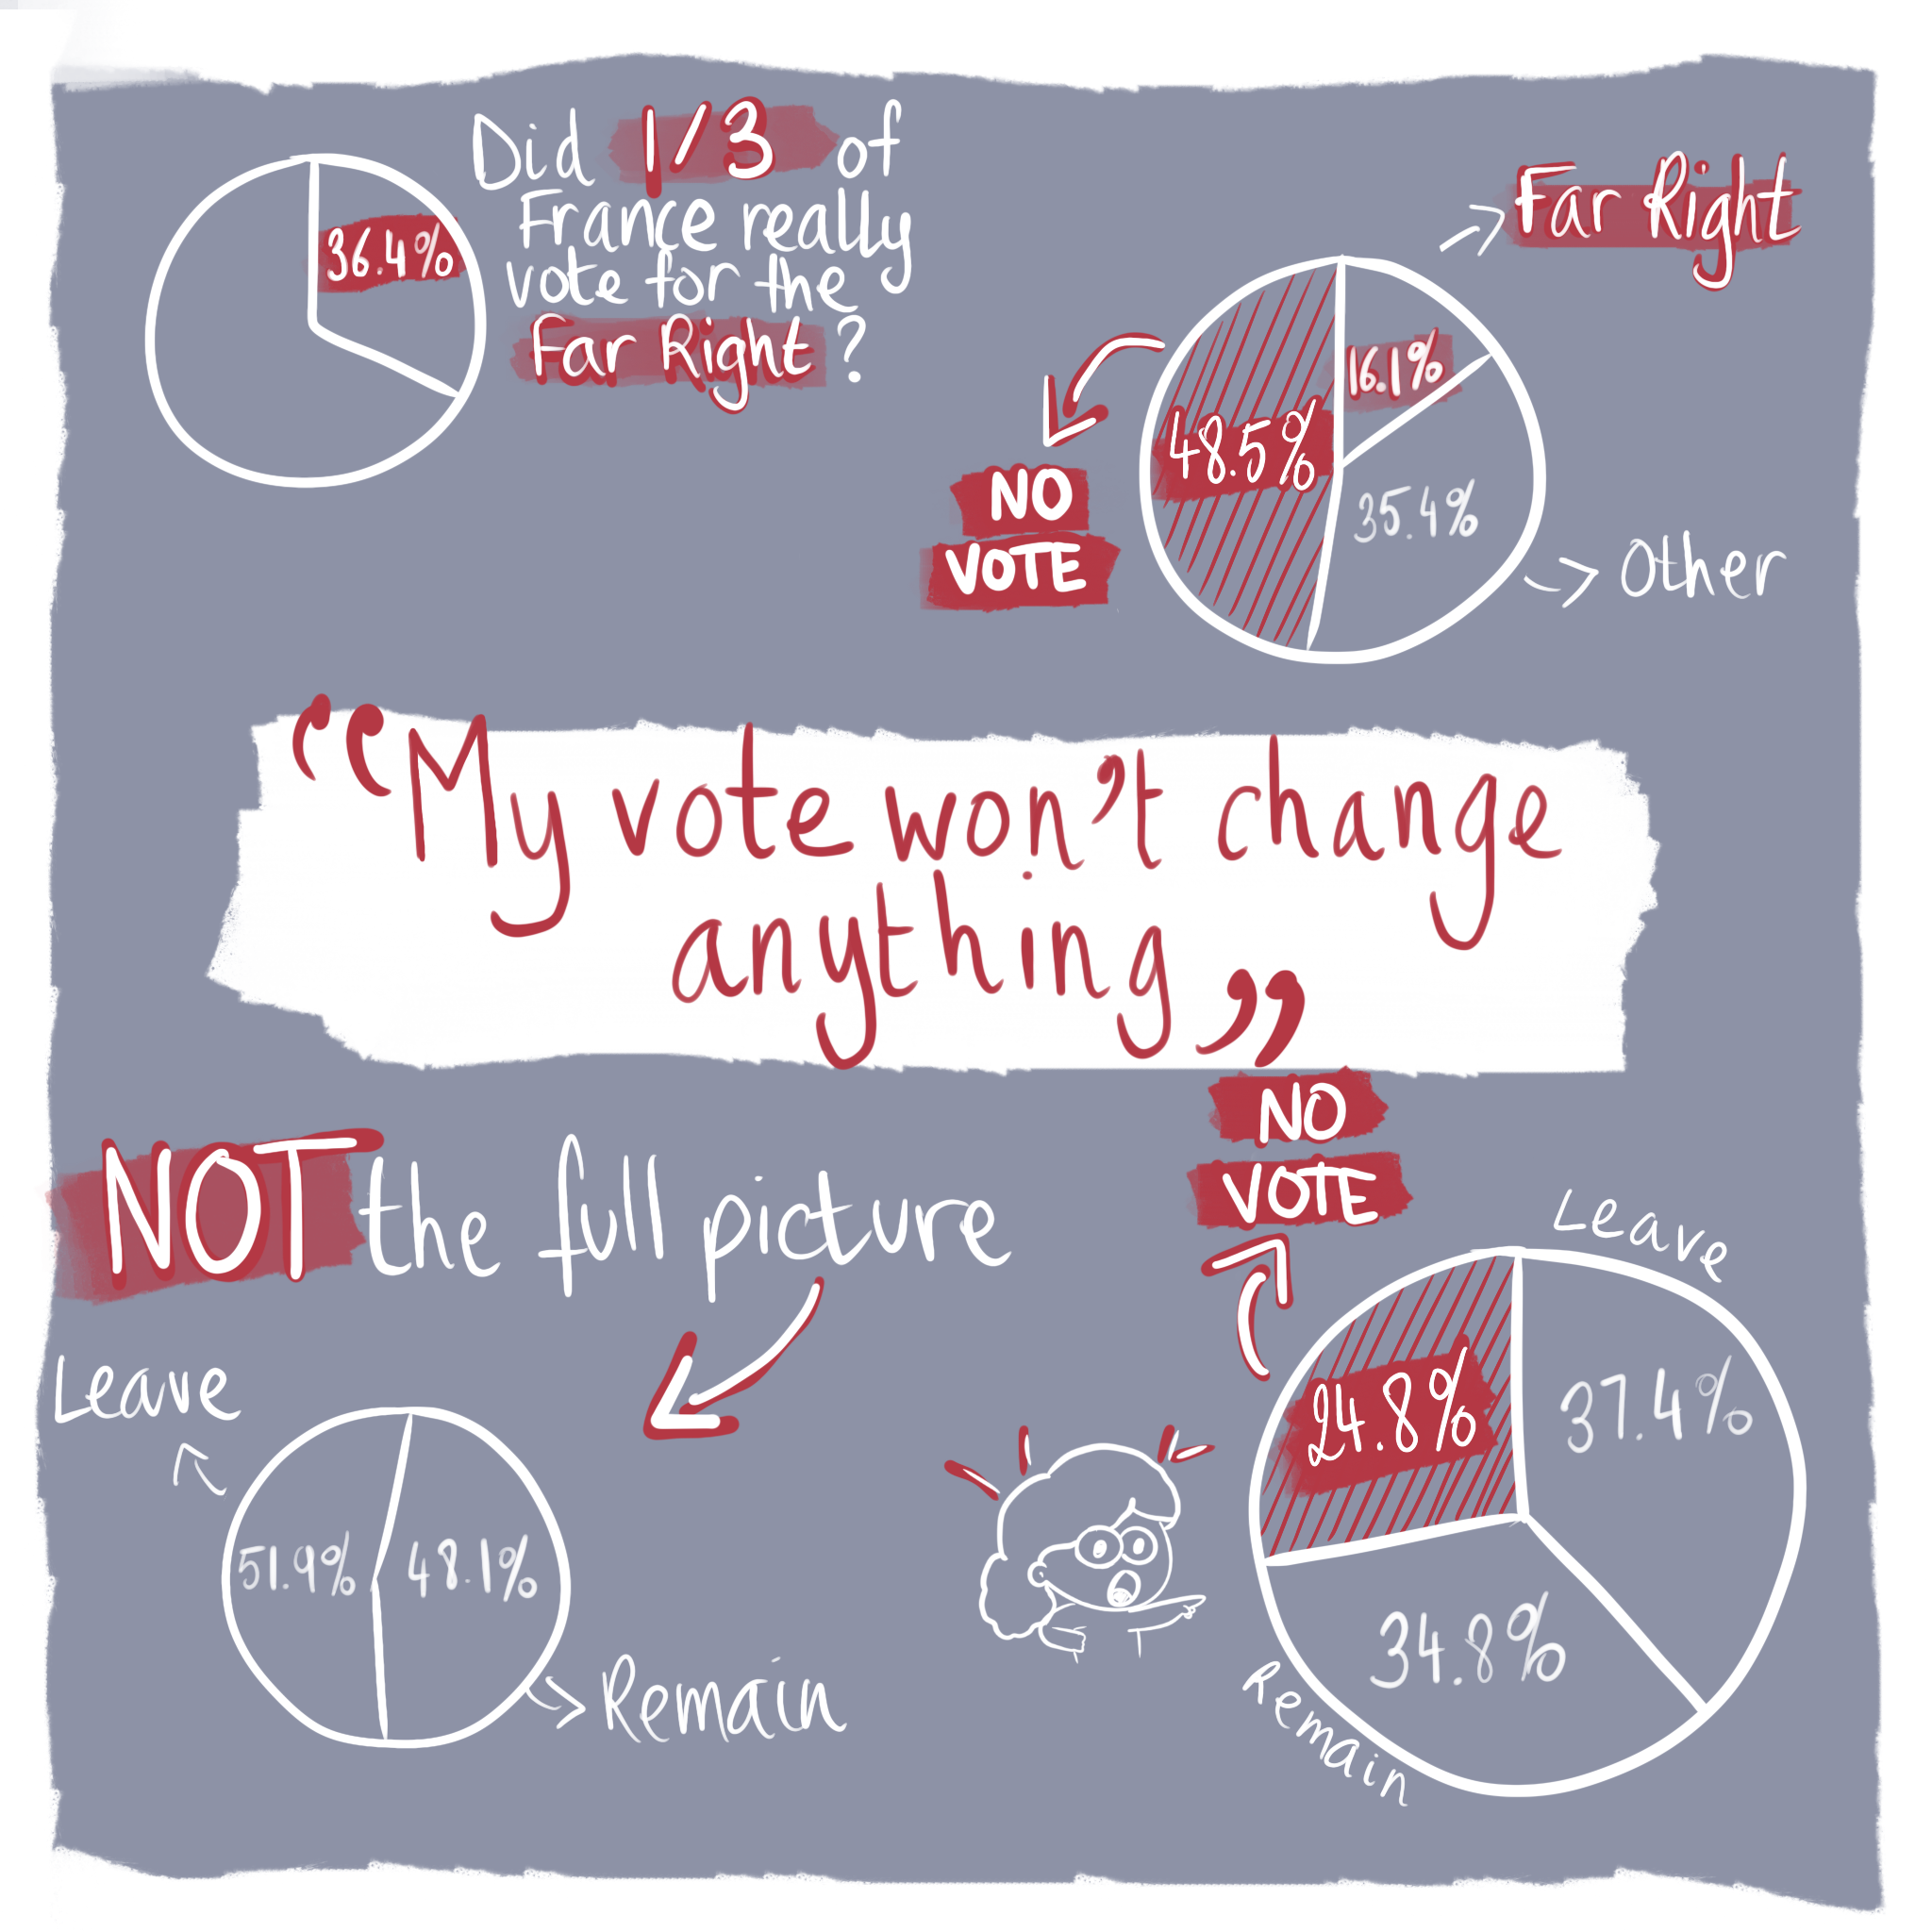 Did 1/3 of
France really
vote for the
Far Right?
36.4%
Far Right
16.1%
48.5%
35.4%
NO
VOTE
Other
“My vote won't change
anything”
NOT the full picture
NO
VOTE
Leave
51.9%
48.1%
Remain
Leave
24.8%
37.4%
34.8%
Remain